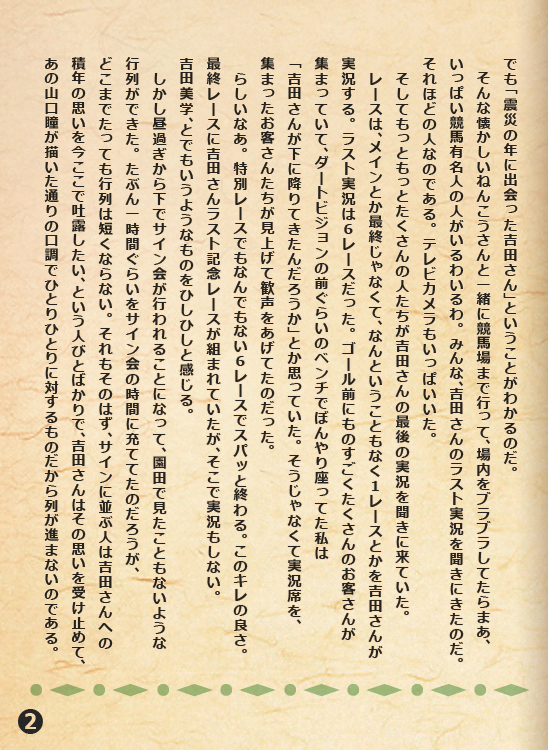 でも「震災の年に出会った吉田さん」ということがわかるのだ。
そんな懐かしいねんこうさんと一緒に競馬場まで行って、場内をブラブラしてたらまあ、
いっぱい競馬有名人の人がいるわいるわ。みんな、吉田さんのラスト実況を聞きにきたのだ。
それほどの人なのである。テレビカメラもいっぱいいた。
そしてもっともっとたくさんの人たちが吉田さんの最後の実況を聞きに来ていた。
レースは、メインとか最終じゃなくて、なんということもなく1レースとかを吉田さんが
実況する。ラスト実況は6レースだった。ゴール前にものすごくたくさんのお客さんが
集まっていて、ダートビジョンの前ぐらいのベンチでぼんやり座ってた私は
「吉田さんが下に降りてきたんだろうか」とか思っていた。そうじゃなくて実況席を、
集まったお客さんたちが見上げて歓声をあげてたのだった。
らしいなあ。特別レースでもなんでもない6レースでスパッと終わる。このキレの良さ。
最終レースに吉田さんラスト記念レースが組まれていたが、そこで実況もしない。
吉田美学、とでもいうようなものをひしひしと感じる。
しかし昼過ぎから下でサイン会が行われることになって、園田で見たこともないような
行列ができた。たぶん一時間ぐらいをサイン会の時間に充ててたのだろうが、
どこまでたっても行列は短くならない。それもそのはず、サインに並ぶ人は吉田さんへの
積年の思いを今ここで吐露したい、という人びとばかりで、吉田さんはその思いを受け止めて、
あの山口瞳が描いた通りの口調でひとりひとりに対するものだから列が進まないのである。
2